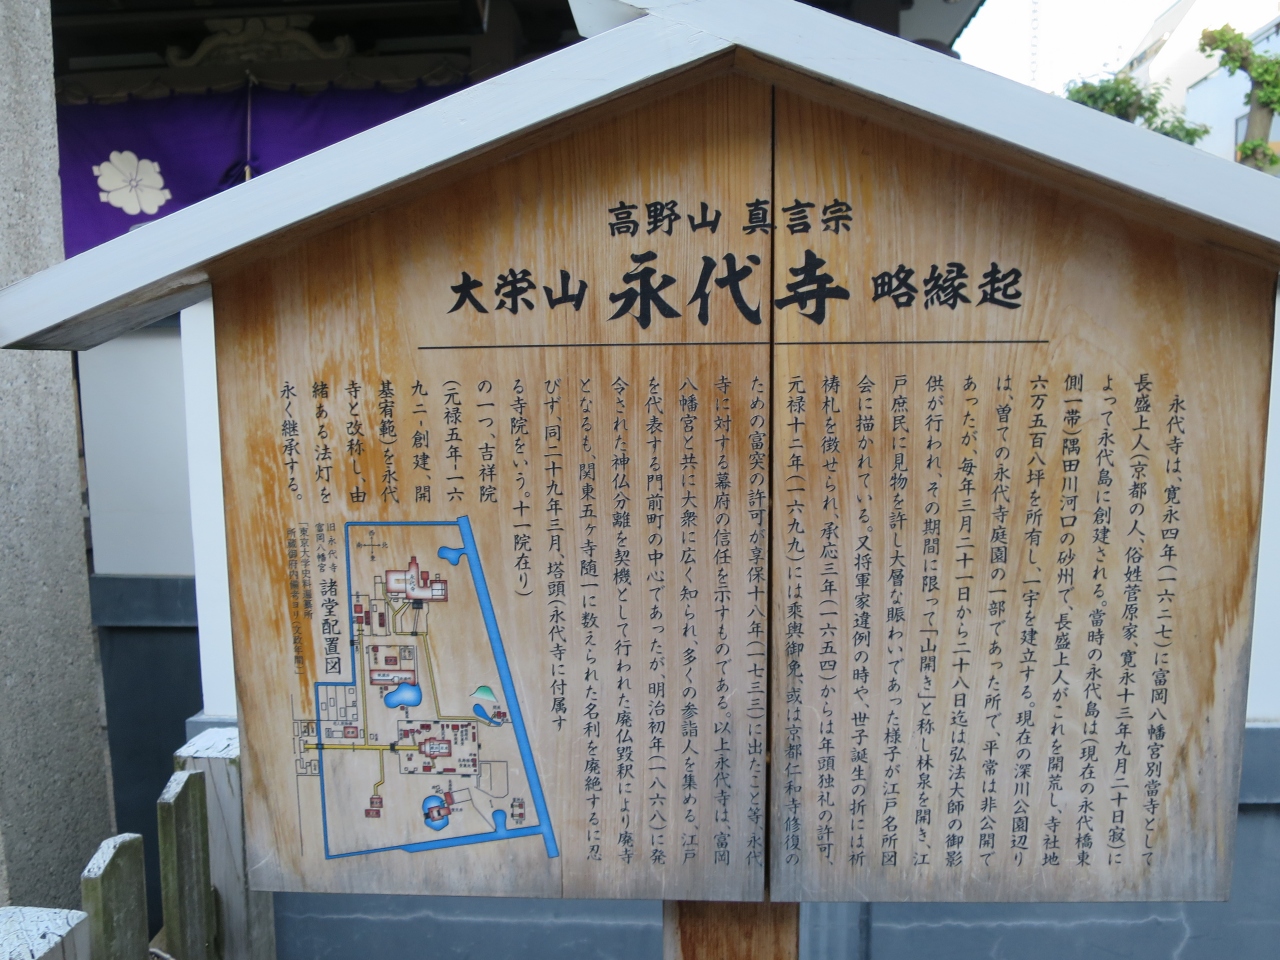 高野山 真言宗
大栄山 永代寺 略縁起
永代寺は、寛永四年(一六二七)に富岡八幡宮別當寺として
長盛上人(京都の人、俗姓菅原家、寛永十三年九月二十日寂)に
よって永代島に創建される。當時の永代島は(現在の永代橋東
側一帯)隅田川河口の砂州で、長盛上人がこれを開荒し、寺社地
六万五百八坪を所有し、一宇を建立する。現在の深川公園辺り
は、曽ての永代寺庭園の一部であった所で、平常は非公開で
あったが、毎年三月二十一日から二十八日迄は弘法大師の御影
供が行われ、その期間に限って「山開き」と称し林泉を開き、江
戸庶民に見物を許し大層な賑わいであった様子が江戸名所図
会に描かれている。又将軍家違例の時や、世子誕生の折には祈
祷札を徴せられ、承応三年(一六五四)からは年頭独礼の許可、
元禄十二年(一六九九)には乘輿御免、或は京都仁和寺修復の
ための富突の許可が享保十八年(一七三三)に出たこと等、永代
寺に対する幕府の信任を示すものである。以上永代寺は、富岡
八幡宮と共に大衆に広く知られ、多くの参詣人を集める、江戸
を代表する門前町の中心であったが、明治初年(一八六八)に発
令された神仏分離を契機として行われた廃仏毀釈により廃寺
となるも、関東五ヶ寺随一に数えられた名刹を廃絶するに忍
びず、同二十九年三月、塔頭(永代寺に付属す
る寺院をいう。十一院在り)
の一つ、吉祥院
(元禄五年-一六
九二-創建、開
基宥範)を永代
寺と改称し、由
緒ある法灯を
永く継承する。
旧・永代寺
富岡八幡宮 諸堂配置図
「東京大学史料編纂所
所蔵御府内備考ヨリ(文政年間)」